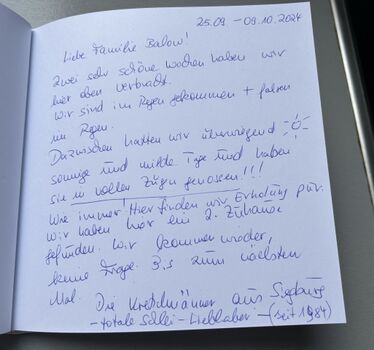 25.09. - 09.10.2024
Liebe Familie Balow!
Zwei sehr schöne Wochen haben wir
hier oben verbracht.
Wir sind im Regen gekommen + fahren
im Regen.
Dazwischen hatten wir überwiegend
sonnige und milde Tage und haben
sie in vollen Zügen genossen!!!
Wie immer! Hier finden wir Erholung pur.
Wir haben hier ein 2. Zuhause
gefunden. Wir kommen wieder,
keine Frage. Bis zum nächsten
Mal. Die aus Siegburg
- totale Schlei-Liebhaber - (seit 1984)